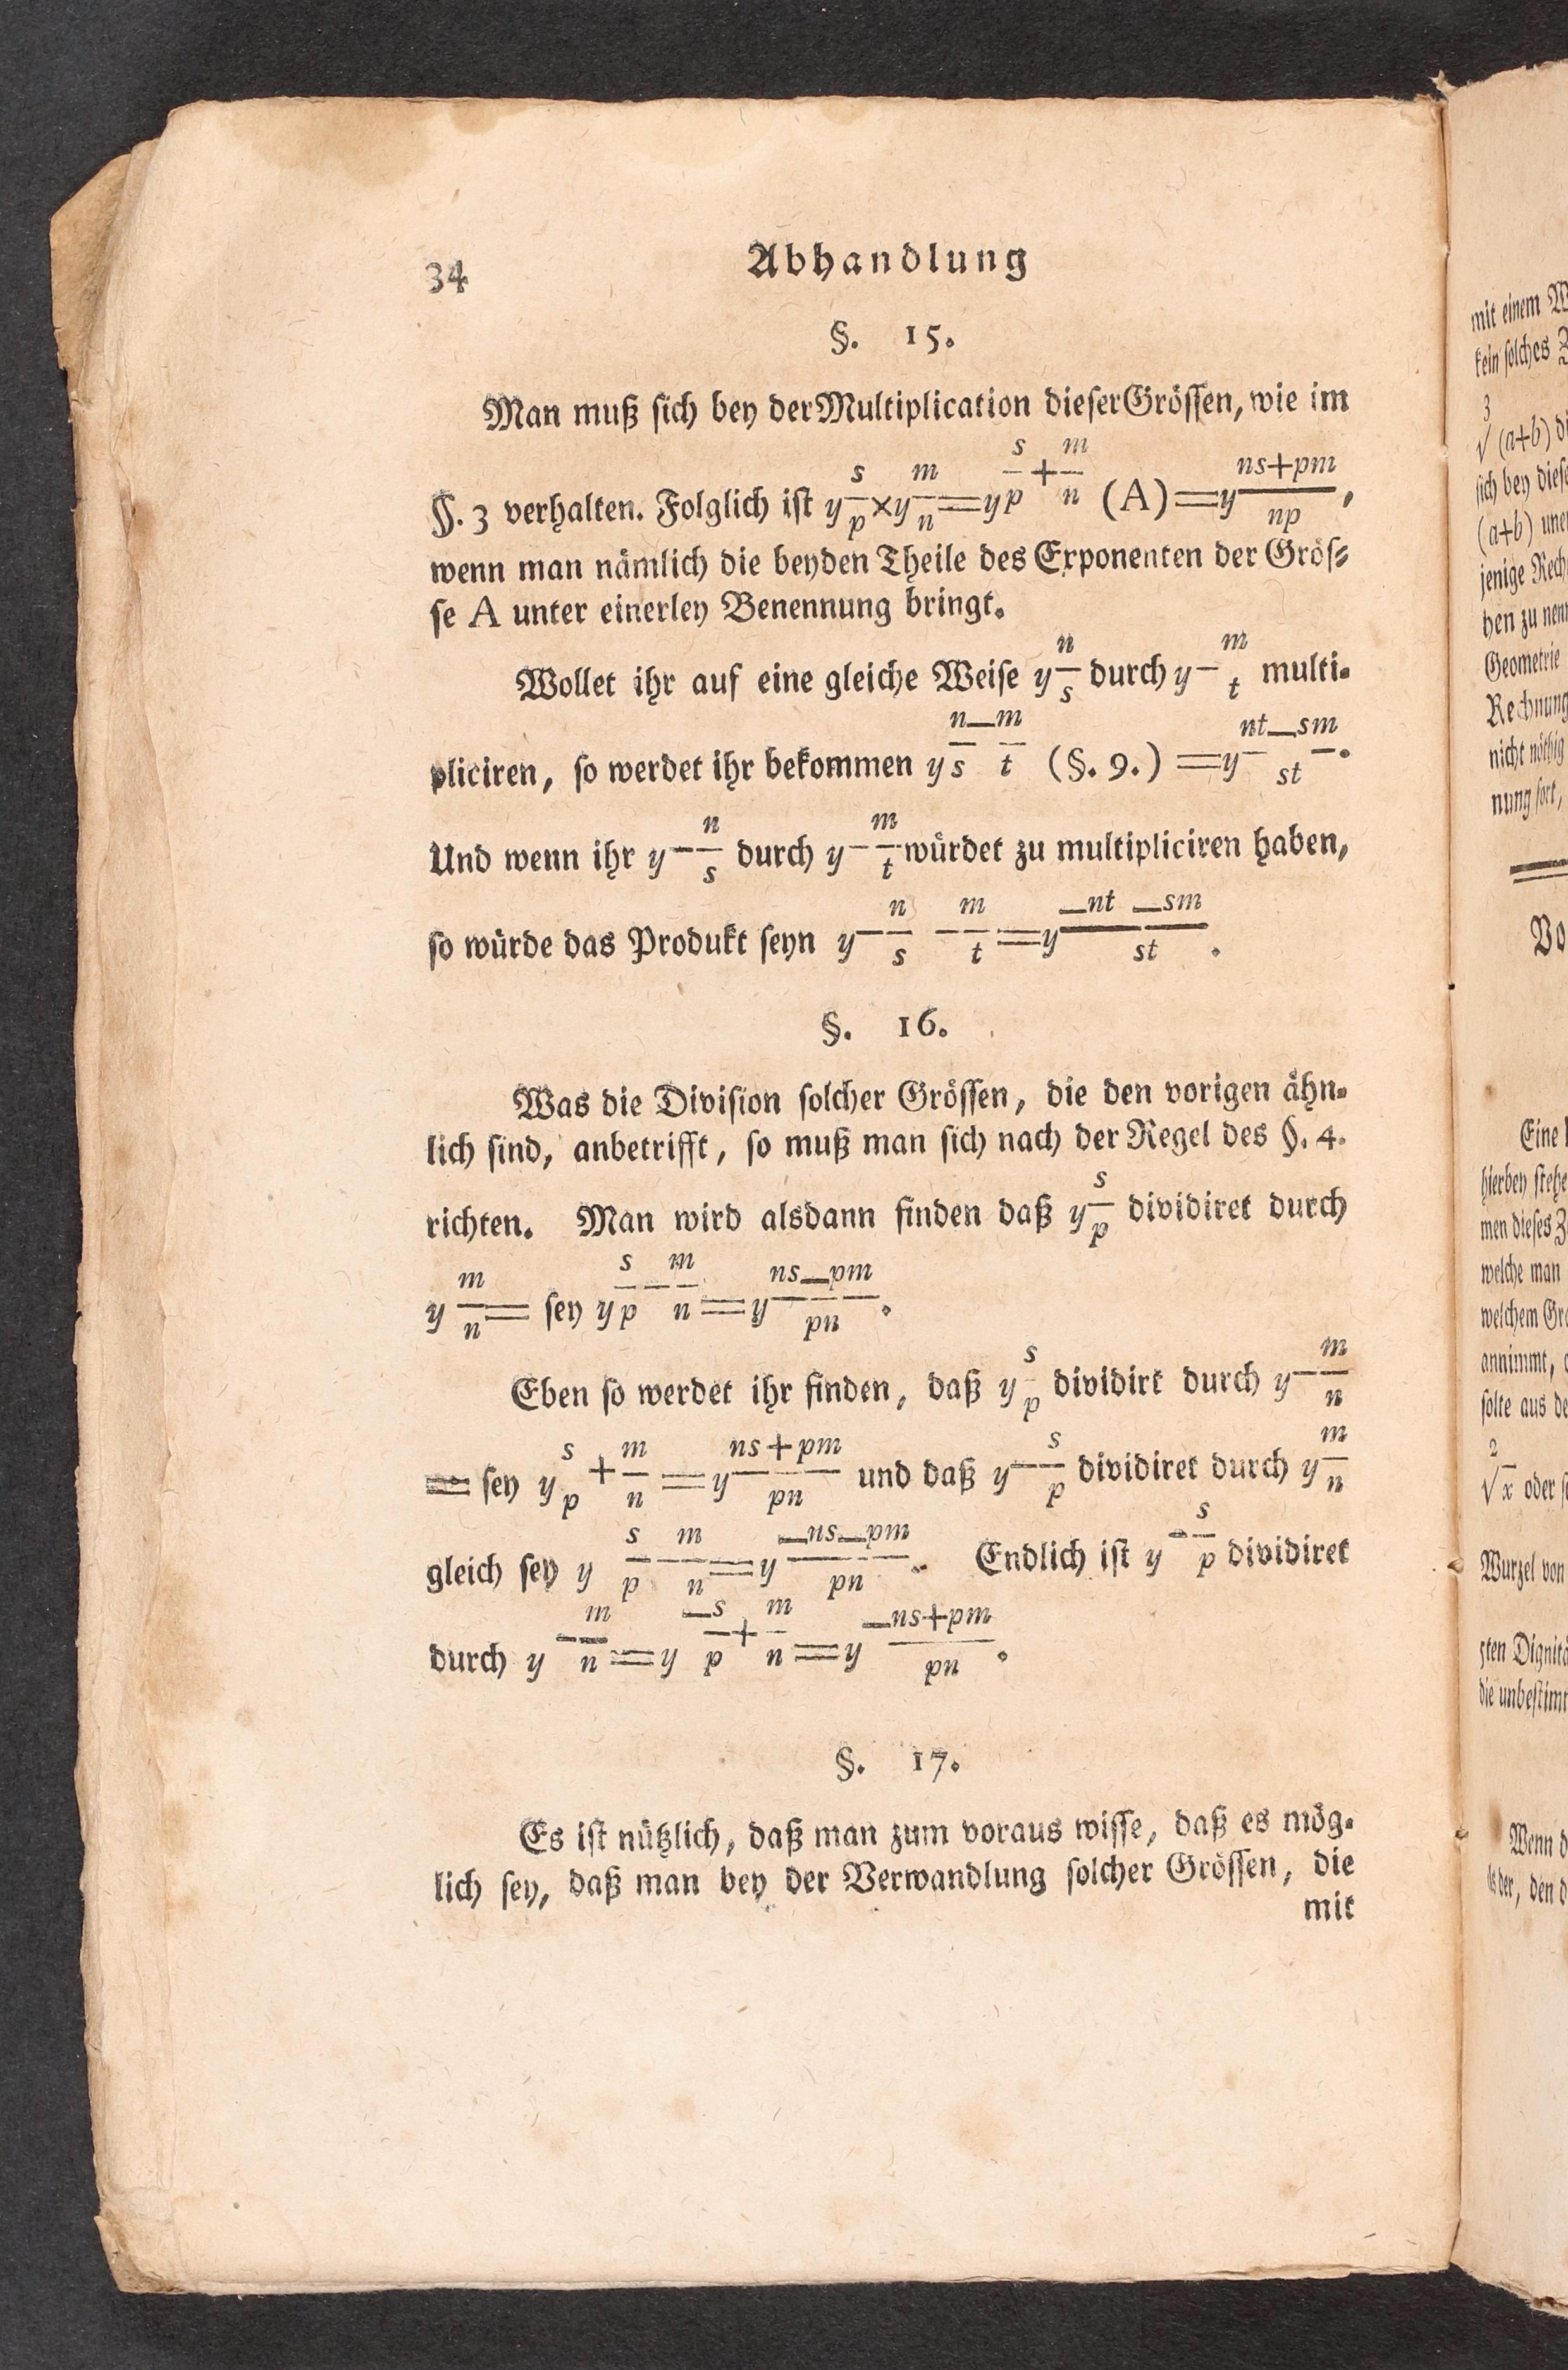 34 Abhandlung
§. 15.
Man muß sich bey der Multiplication dieser Grössen, wie im
§. 3 verhalten. Folglich ist y^{s/p}×y^{m/n}=y^{s/p+m/n} (A)=y^{(ns+pm)/np},
wenn man nämlich die beyden Theile des Exponenten der Grös-
se A unter einerley Benennung bringt.
Wollet ihr auf eine gleiche Weise y^{n/s} durch y^{-m/t} multi-
pliciren, so werdet ihr bekommen y^{n/s-m/t} (§. 9.) =y^{(nt-sm)/st}.
Und wenn ihr y^{-n/s} durch y^{-m/t} würdet zu multipliciren haben,
so würde das Produkt seyn y^{-n/s-m/t}=y^{(-nt-sm)/st}.
§. 16.
Was die Division solcher Grössen, die den vorigen ähn-
lich sind, anbetrifft, so muß man sich nach der Regel des §. 4.
richten. Man wird alsdann finden daß y^{s/p} dividiret durch
y^{m/n}= sey y^{s/p-m/n}=y^{(ns-pm)/pn}.
Eben so werdet ihr finden, daß y^{s/p} dividirt durch y^{-m/n}
= sey y^{s/p+m/n}=y^{(ns+pm)/pn} und daß y^{-s/p} dividiret durch y^{m/n}
gleich sey y^{s/p-m/n}=y^{(-ns-pm)/pn}. Endlich ist y^{-s/p} dividiret
durch y^{-m/n}=y^{-s/p+m/n}=y^{(-ns+pm)/pn}.
§. 17.
Es ist nützlich, daß man zum voraus wisse, daß es mög-
lich sey, daß man bey der Verwandlung solcher Grössen, die
mit
mit einem
kein solches
∛(a+b)
sich bey
(a+b)
jenige
ben zu
Geometrie
Rechnung
nicht nöthig
nung fort,
Eine
hierbey
men dieses
welche man
welchem
annimmt,
solte aus
√x oder
Wurzel von
sten
Wenn